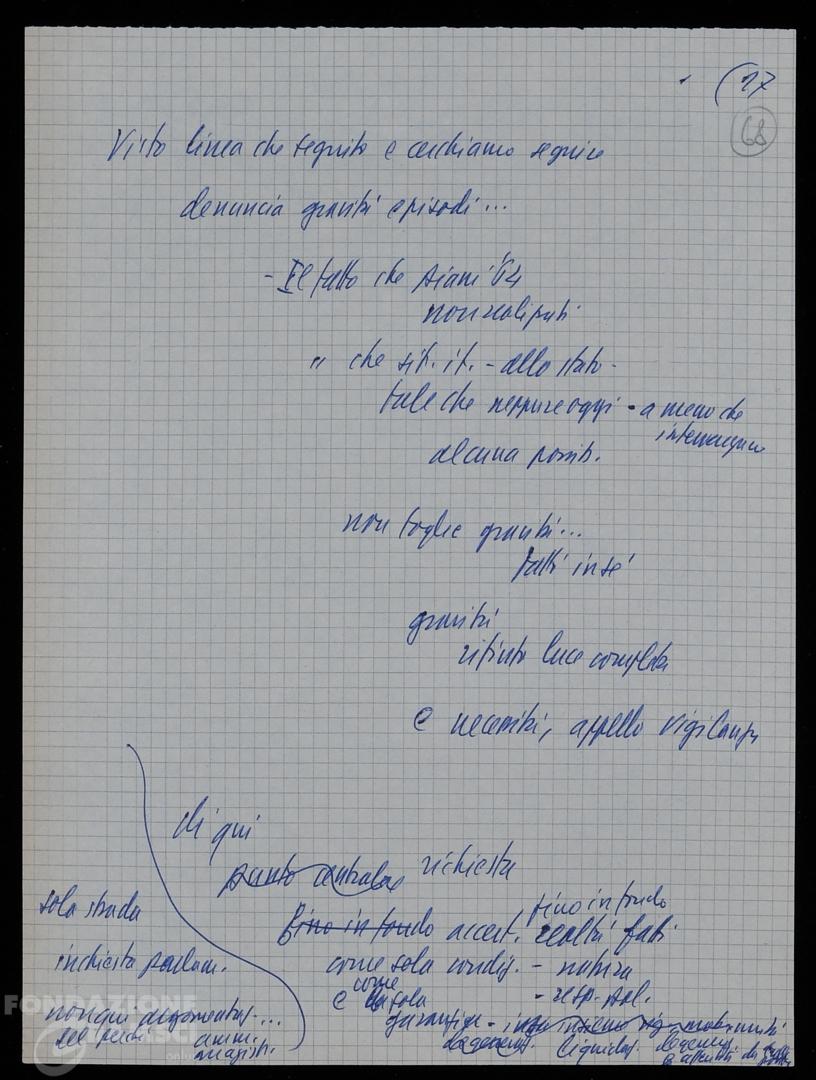 (17
68
Visto linea che seguito e cerchiamo seguire
denuncia gravità episodi...
- Il fatto che piani '64
non realizzati
" che sit. it. - allo stato -
tale che neppure oggi - a meno che
alcuna possib.
non toglie gravità...
fatti in sé
gravità
rifiuto luce completa
e necessità, appello vigilanza
di qui
punto centrale richiesta
fino in fondo
fino in fondo accert. realtà fatti
come sola condiz. - natura
come
e sola - resp. pol.
garanzia -
liquidaz. degeneraz.
sola strada
inchiesta parlam.
non qui argomentaz...
del resto ammi.
magistr.
FONDAZIONE